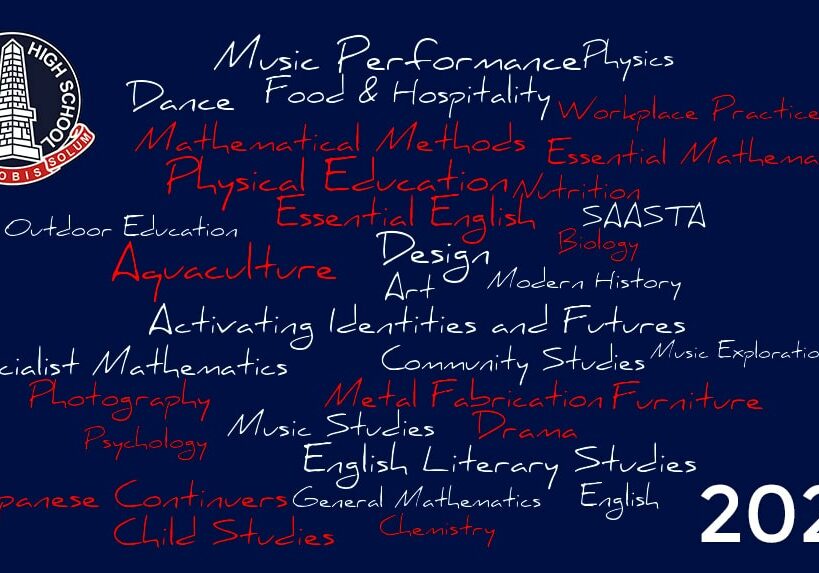 HIGH SCHOOL
OBIS SOLUM
Music Performance Physics
Dance Food & Hospitality Workplace Practice
Mathematical Methods Essential Mathema
Physical Education Nutrition
Essential English SAASTA
Outdoor Education Biology
Design
Aquaculture
Art Modern History
Activating Identities and Futures
cialist Mathematics Community Studies Music Exploratio
Photography Metal Fabrication Furniture
Music Studies Drama
Psychology
English Literary Studies
panese Continuers General Mathematics English
Child Studies Chemistry
202